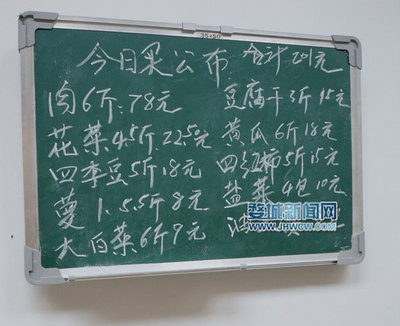 35×50
今日采公布 合计201元
肉6斤:78元
花菜4.5斤22.5元
四季豆5斤18元
蔓 1.5.5斤8元
大白菜6斤9元
豆腐干3斤15元
黄瓜6斤18元
四红柿5斤15元
盐菜4包10元
婺城新闻网
WWW.JHWCW.COM